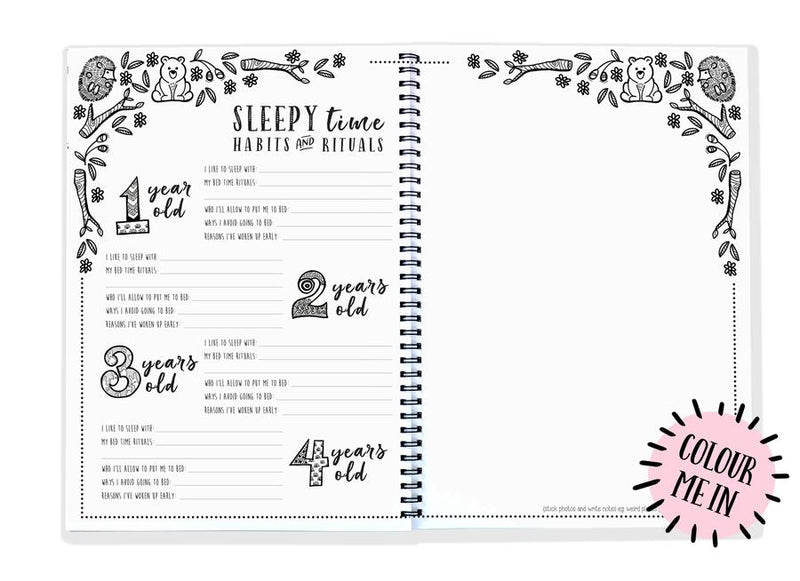 SLEEPY time
HABITS AND RITUALS
1 year old
I LIKE TO SLEEP WITH:
MY BED TIME RITUALS:
WHO I'LL ALLOW TO PUT ME TO BED:
WAYS I AVOID GOING TO BED:
REASONS I'VE WOKEN UP EARLY:
2 years old
I LIKE TO SLEEP WITH:
MY BED TIME RITUALS:
WHO I'LL ALLOW TO PUT ME TO BED:
WAYS I AVOID GOING TO BED:
REASONS I'VE WOKEN UP EARLY:
3 years old
I LIKE TO SLEEP WITH:
MY BED TIME RITUALS:
WHO I'LL ALLOW TO PUT ME TO BED:
WAYS I AVOID GOING TO BED:
REASONS I'VE WOKEN UP EARLY:
4 years old
I LIKE TO SLEEP WITH:
MY BED TIME RITUALS:
WHO I'LL ALLOW TO PUT ME TO BED:
WAYS I AVOID GOING TO BED:
REASONS I'VE WOKEN UP EARLY:
(stick photos and write notes eg. weird
COLOUR
ME IN